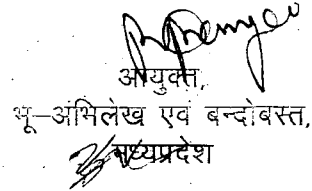 आयुक्त,
भू-अभिलेख एवं बन्दोबस्त,
मध्यप्रदेश